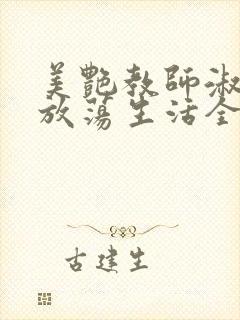 美艷教師淑
放蕩生活全
古建生